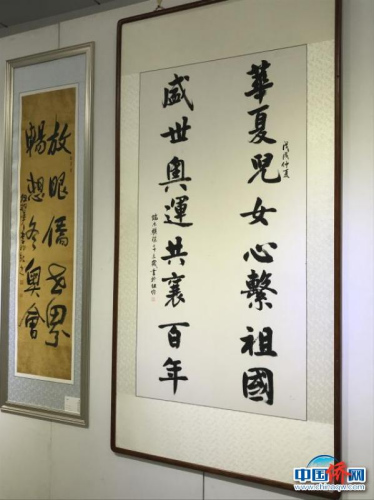 華夏兒女心繫祖國
盛世奧運共襄百年
戊戌仲夏
放眼僑世界
暢想冬奧會
中国侨网
www.chinaqw.com